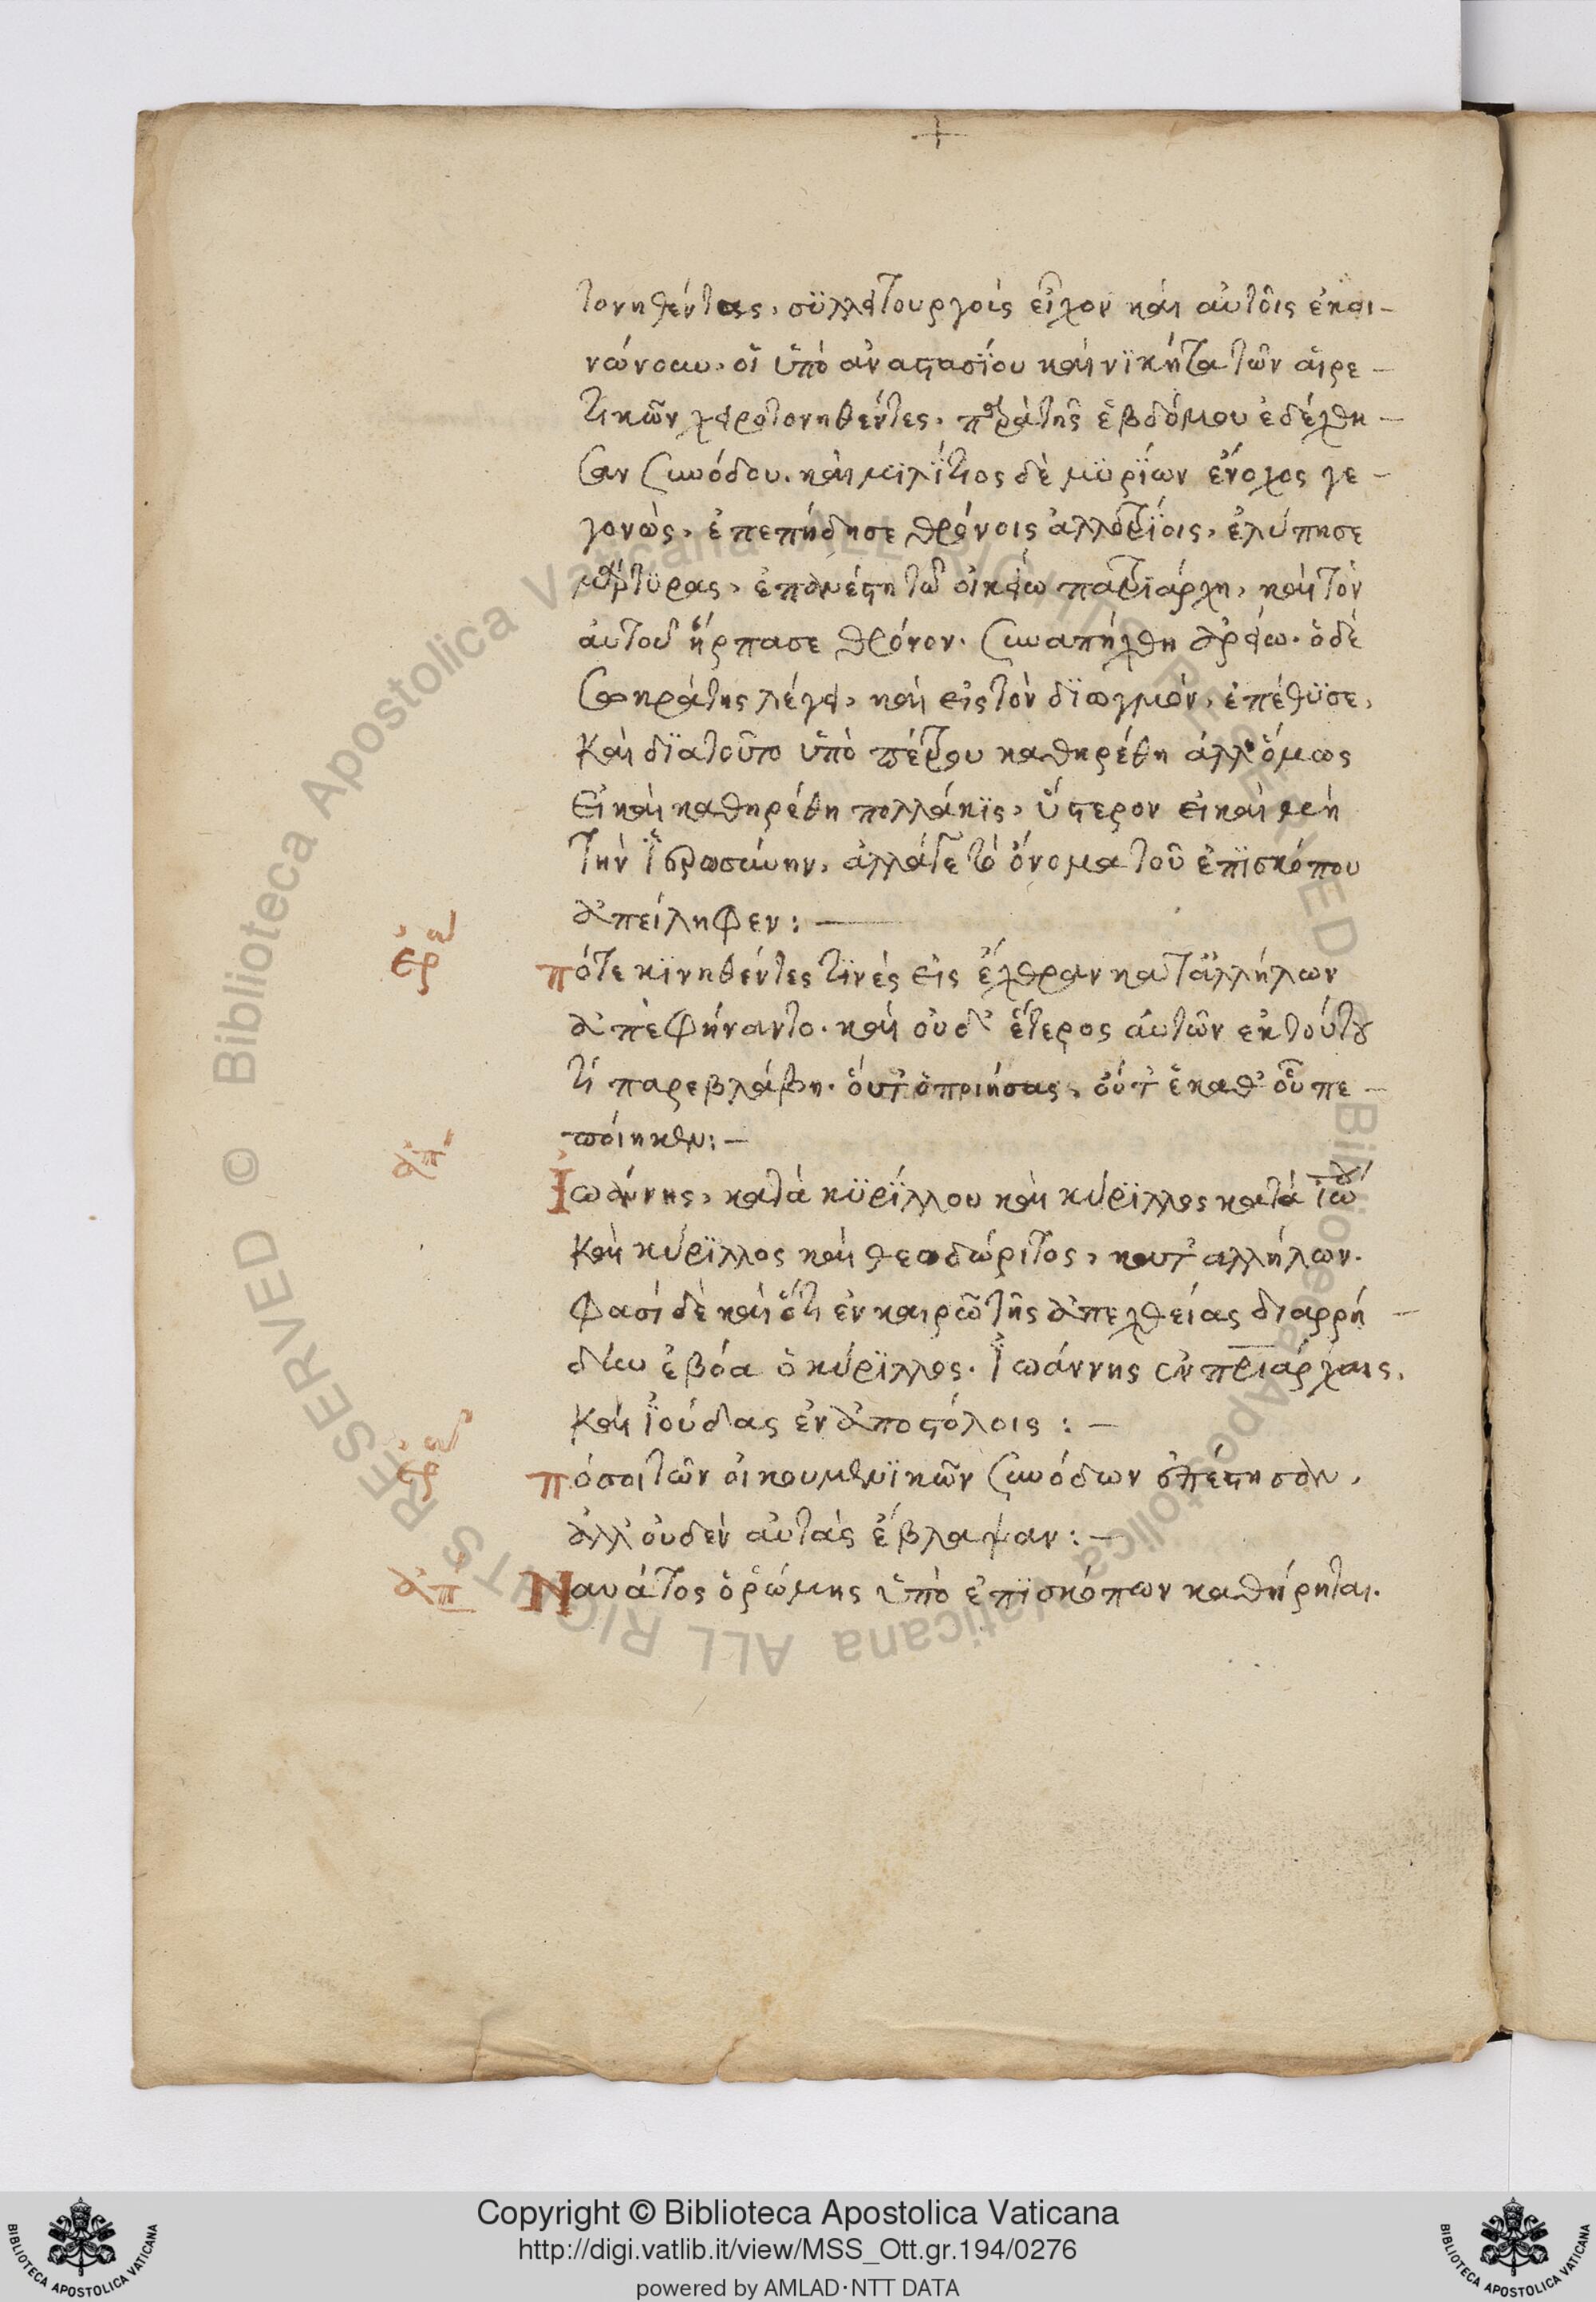 τονηθέντας, συλλειτουργοὺς εἶχον καὶ αὐτοῖς ἐκοι-
νώνουν. οἱ ὑπὸ ἀναστασίου καὶ νικήτα τῶν αἱρε-
τικῶν χειροτονηθέντες, παρὰ τῆς ἑβδόμου ἐδέχθη-
σαν συνόδου. καὶ μϊλίτιος δὲ μϋρϊων ἔνοχος γε-
γονὼς, ἐπεπήδησε θρόνοις ἀλλοτρίοις, ἐλύπησε
μάρτϋρας, ἐπανέστη τῶ οἰκείω πατριάρχη, καὶ τὸν
αὐτοῦ ἥρπασε θρόνον. συναπήχθη ἀρείω. ὁ δὲ
σωκράτης λέγει, καὶ εἰς τὸν δϊωγμὸν, ἐπέθϋσε,
καὶ δϊατοῦτο ὑπὸ πέτρου καθηρέθη ἀλλ' ὅμως
εἰ καὶ καθηρέθη πολλάκϊς, ὕστερον εἰ καὶ μὴ
τὴν ἱερωσύνην, ἀλλά γε τὸ ὄνομα τοῦ ἐπϊσκόπου
ἀπείληφεν: —
ἐρω
πότε κϊνηθέντες τϊνὲς εἰς ἔχθραν κατ' ἀλλήλων
ἀπεφήναντο. καὶ οὐδ' ἕτερος αὐτῶν ἐκ τούτου
τί παρεβλάβη. οὔτ' ὁ ποιήσας, οὔτ' ὁ καθ' οὗ πε-
ποίηκεν: —
ἀπ
Ἰωάννης, κατὰ κϋρϊλλου καὶ κύρϊλλος κατὰ ἰω
καὶ κύρϊλλος καὶ θεοδώριτος, κατ' ἀλλήλων.
φασὶ δὲ καὶ ὅτι ἐν καιρῶ τῆς ἀπεχθείας διαρρή-
δην ἐβόα ὁ κύρϊλλος. ἰωάννης ἐν πριάρχαις,
καὶ ἰούδας ἐν ἀποστόλοις: —
ἐρω
πόσοι τῶν οἰκουμενϊκῶν συνόδων ἀπέστησαν,
ἀλλ' οὐδὲν αὐτὰς ἔβλαψαν: —
ἀπ
Ναυάτος ὁ ῥώμης ὑπὸ ἐπϊσκόπων καθήρηται.
Copyright © Biblioteca Apostolica Vaticana
http://digi.vatlib.it/view/MSS_Ott.gr.194/0276
powered by AMLAD·NTT DATA